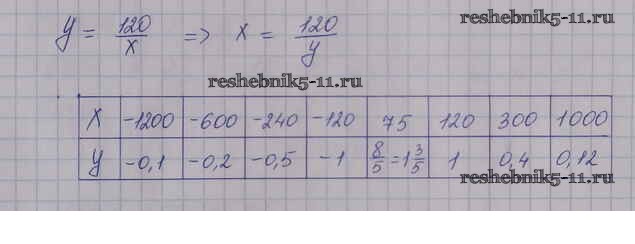 reshebnik5-11.ru
y = 120/x => x = 120/y
reshebnik5-11.ru
x -1200 -600 -240 -120 75 120 300 1000
y -0,1 -0,2 -0,5 -1 8/5=1 3/5 1 0,4 0,12
reshebnik5-11.ru